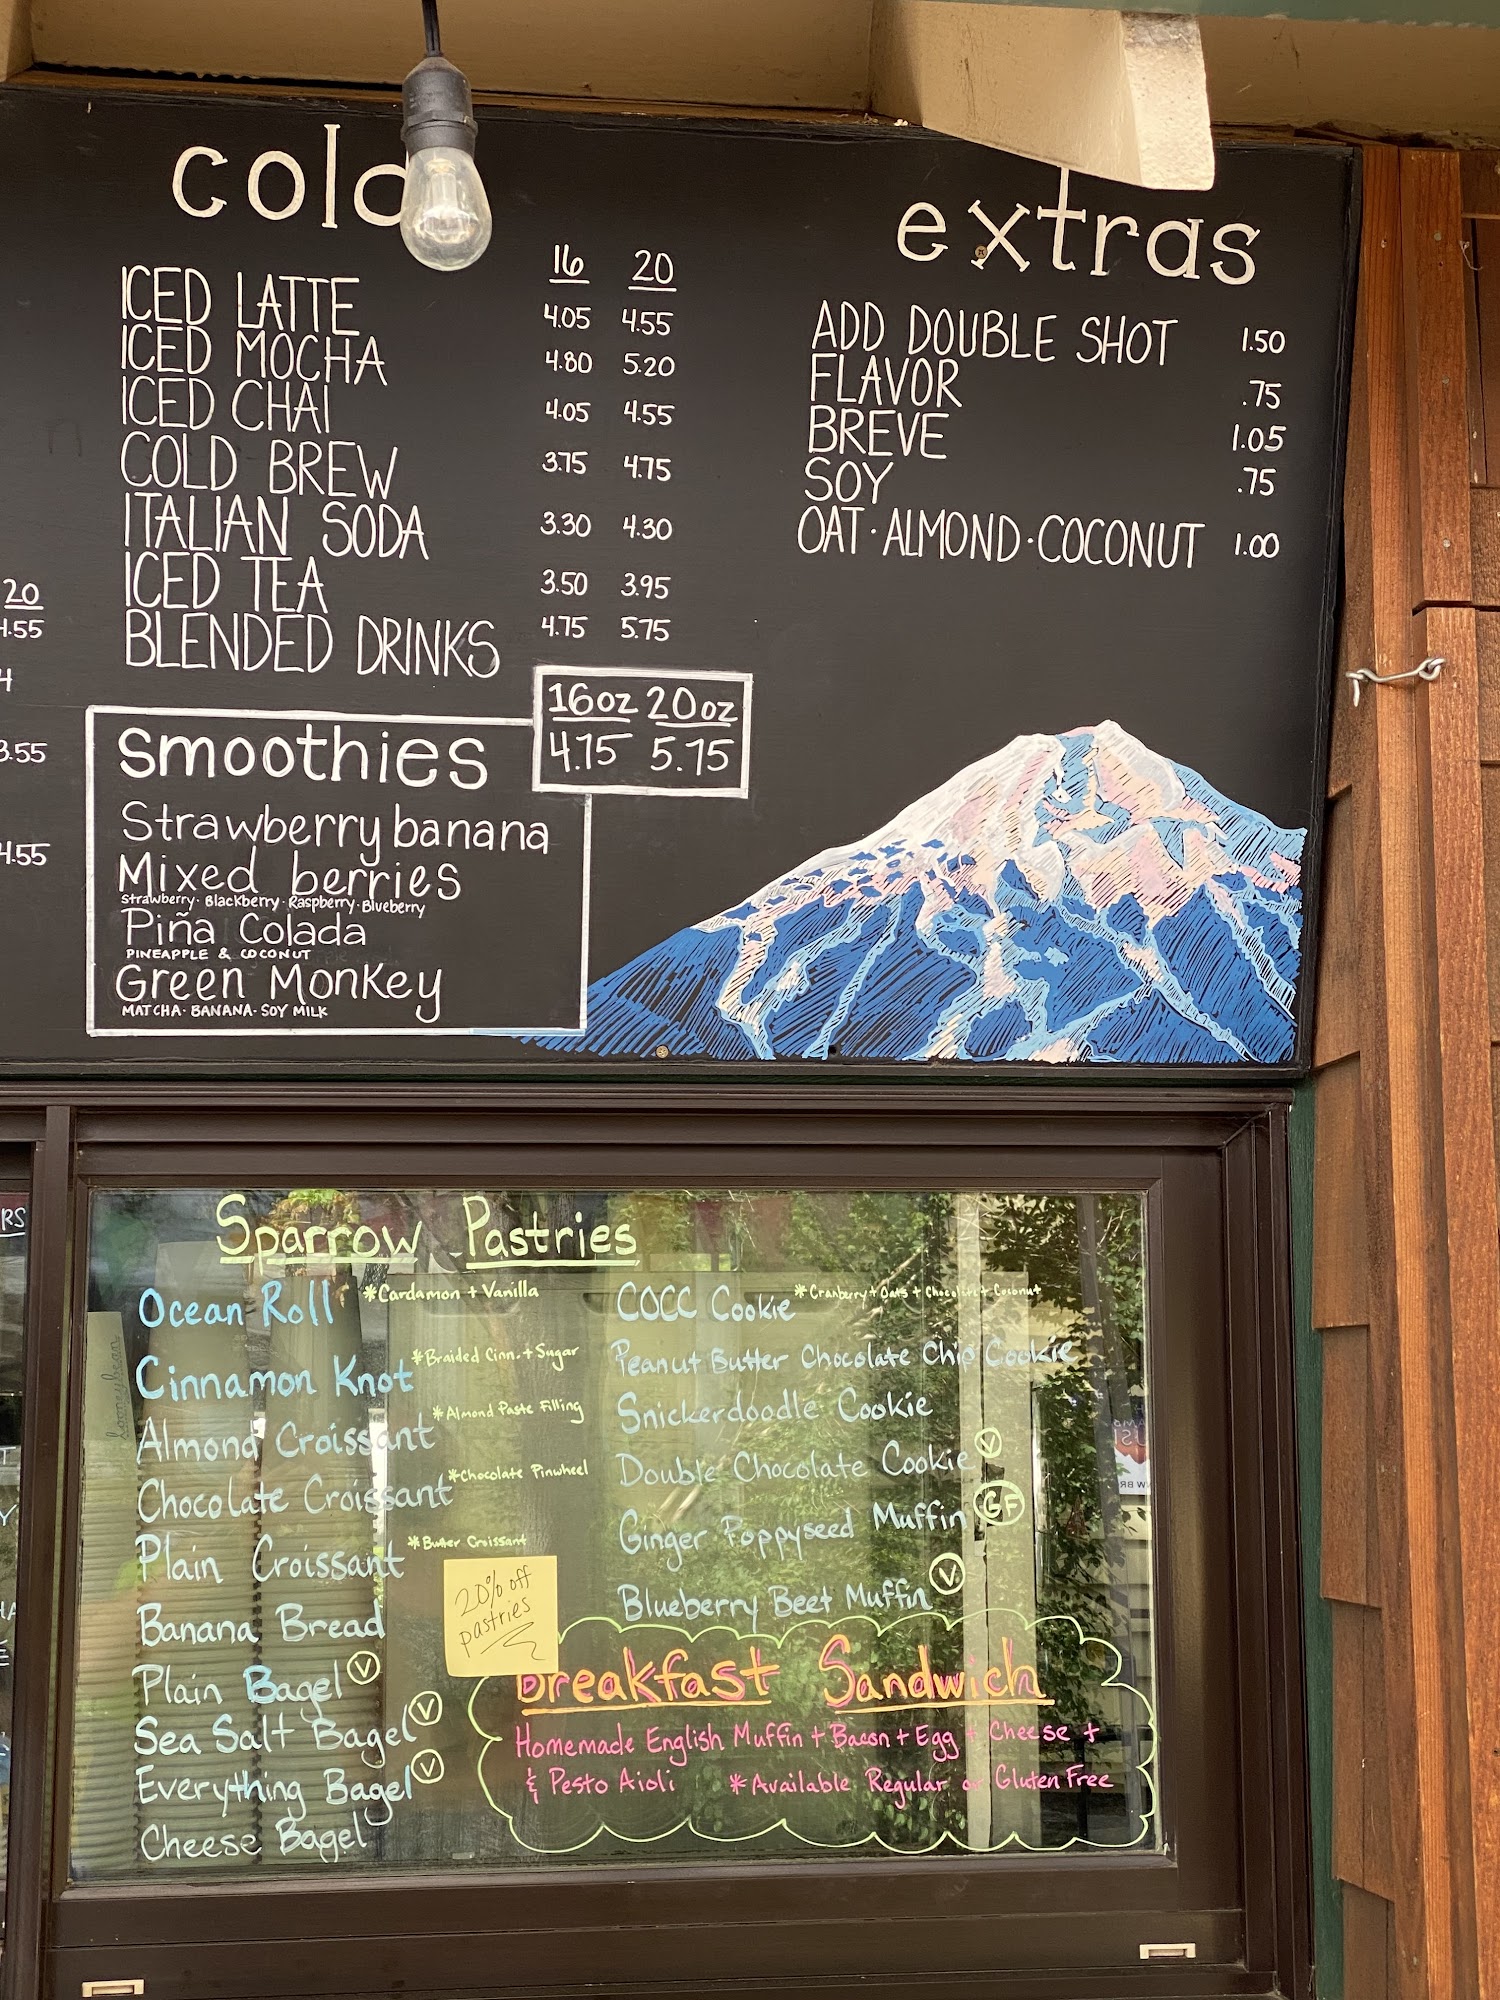 cold
16 20
ICED LATTE 4.05 4.55
ICED MOCHA 4.80 5.20
ICED CHAI 4.05 4.55
COLD BREW 3.75 4.75
ITALIAN SODA 3.30 4.30
ICED TEA 3.50 3.95
BLENDED DRINKS 4.75 5.75
16oz 20oz
4.75 5.75
smoothies
Strawberry banana
Mixed berries
Strawberry · Blackberry · Raspberry · Blueberry
Piña Colada
PINEAPPLE & COCONUT
Green Monkey
MATCHA · BANANA · SOY MILK
extras
ADD DOUBLE SHOT 1.50
FLAVOR .75
BREVE 1.05
SOY .75
OAT · ALMOND · COCONUT 1.00
20
4.55
4
3.55
4.55
Sparrow Pastries
Ocean Roll *Cardamon + Vanilla
Cinnamon Knot *Braided Cinn. + Sugar
Almond Croissant *Almond Paste Filling
Chocolate Croissant *Chocolate Pinwheel
Plain Croissant *Butter Croissant
Banana Bread
Plain Bagel V
Sea Salt Bagel V
Everything Bagel V
Cheese Bagel
COCC Cookie *Cranberry + Oats + Chocolate + Coconut
Peanut Butter Chocolate Chip Cookie
Snickerdoodle Cookie
Double Chocolate Cookie V
Ginger Poppyseed Muffin GF
Blueberry Beet Muffin V
20% off
pastries
Breakfast Sandwich
Homemade English Muffin + Bacon + Egg + Cheese +
& Pesto Aioli *Available Regular or Gluten Free